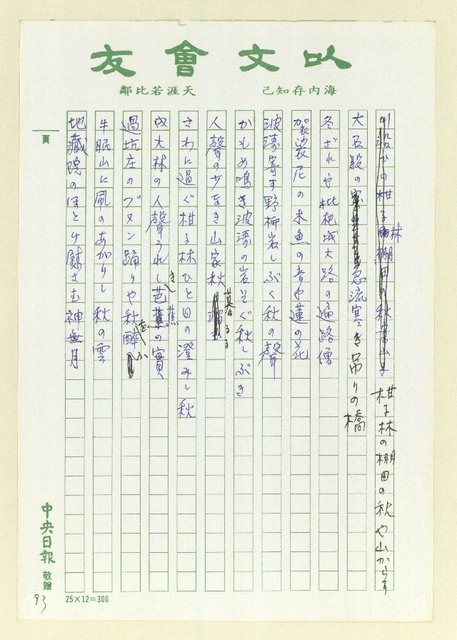 以文會友
海内存知己
天涯若比鄰
柑子林の棚田の秋や山からす
急流寒き吊りの橋
冬ざれや枇杷城大路の遍路僧
袈裟尼の木魚の音や蓮の花
波濤寄す野柳岩しぶく秋の聲
かもめ鳴き波濤の岩そぐ秋しぶき
人聲の少なき山家秋暮るる
さわに過ぐ柑子林ひと日の澄みし秋
大林の人聲うれし芭蕉の實
過坑庄のブヌン踊りや秋
牛眠山に風のあがりし秋の雲
地藏院のほとけ慰さむ神無月
頁
中央日報
敬贈
93
25×12=300